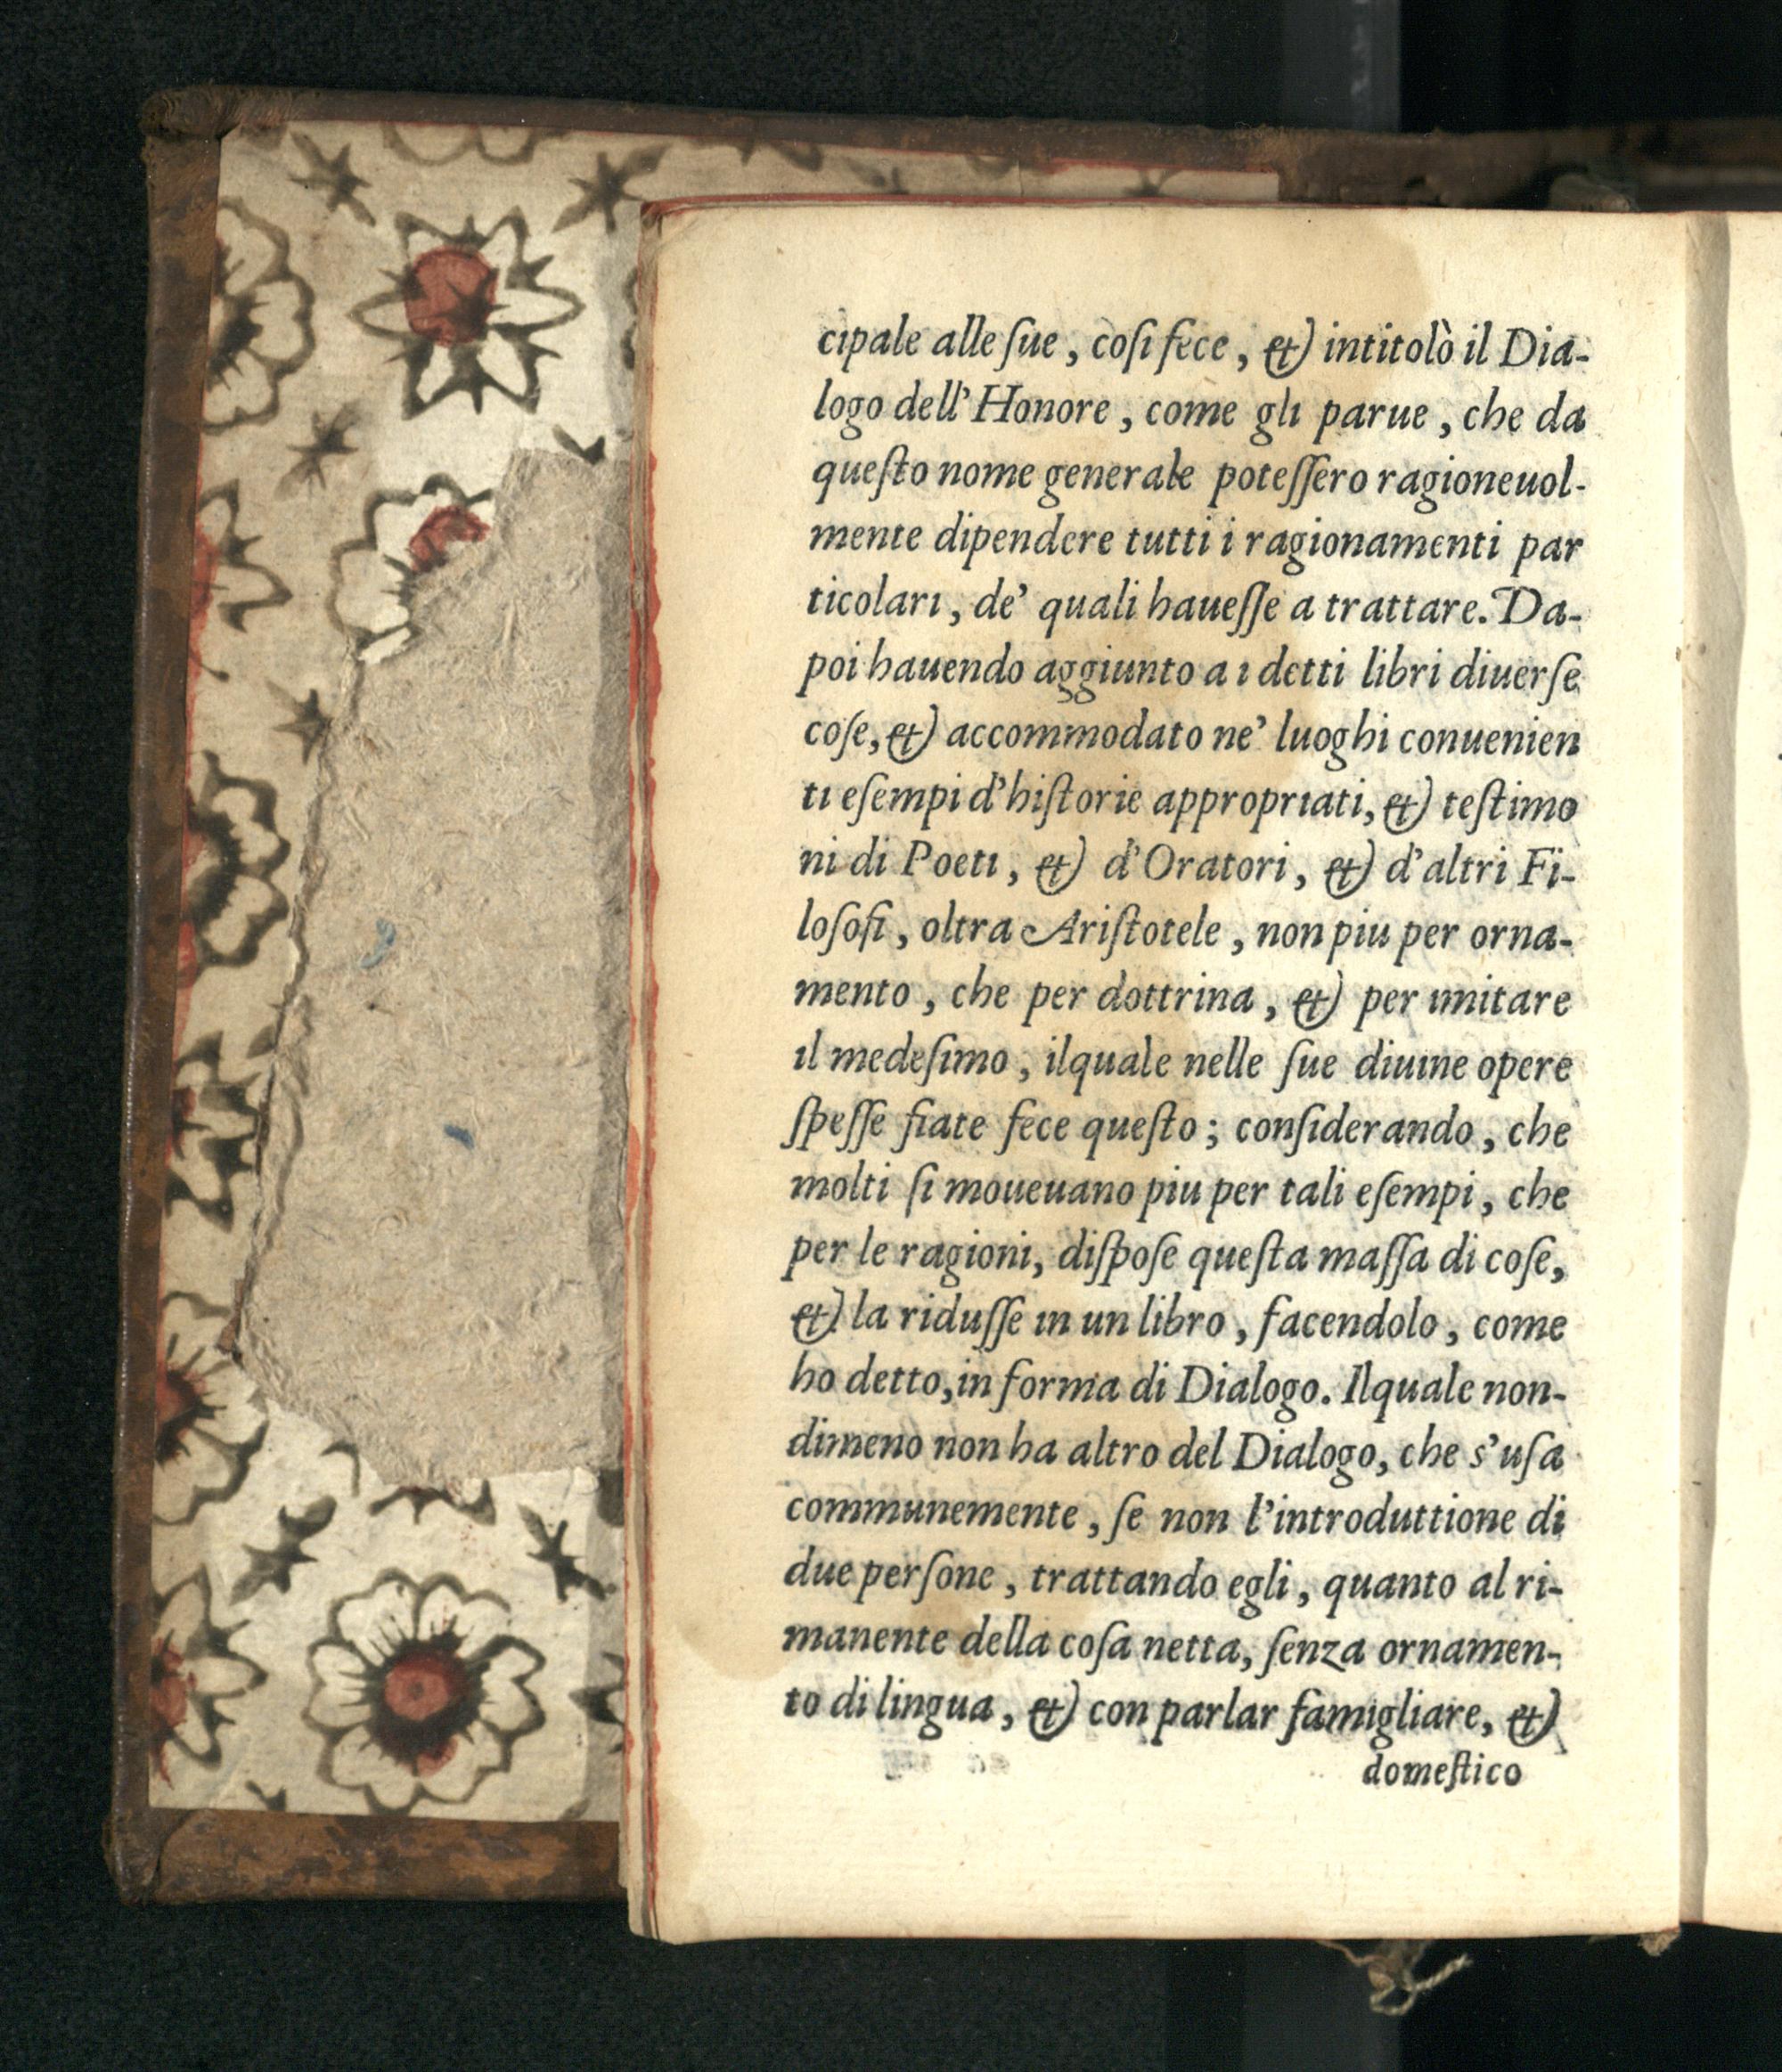 cipale alle ſue, coſi fece, et intitolò il Dia-
logo dell' Honore, come gli parue, che da
queſto nome generale poteſſero ragioneuol-
mente dipendere tutti i ragionamenti par
ticolari, de' quali haueſſe a trattare. Da-
poi hauendo aggiunto a i detti libri diuerſe
coſe, et accommodato ne' luoghi conuenien
ti eſempi d'hiſtorie appropriati, et teſtimo
ni di Poeti, et d'Oratori, et d'altri Fi-
loſofi, oltra Ariſtotele, non piu per orna-
mento, che per dottrina, et per imitare
il medeſimo, ilquale nelle ſue diuine opere
ſpeſſe fiate fece queſto; conſiderando, che
molti ſi moueuano piu per tali eſempi, che
per le ragioni, diſpoſe queſta maſſa di coſe,
et la riduſſe in un libro, facendolo, come
ho detto, in forma di Dialogo. Ilquale non-
dimeno non ha altro del Dialogo, che s'uſa
communemente, ſe non l'introduttione di
due perſone, trattando egli, quanto al ri-
manente della coſa netta, ſenza ornamen-
to di lingua, et con parlar famigliare, et
domeſtico